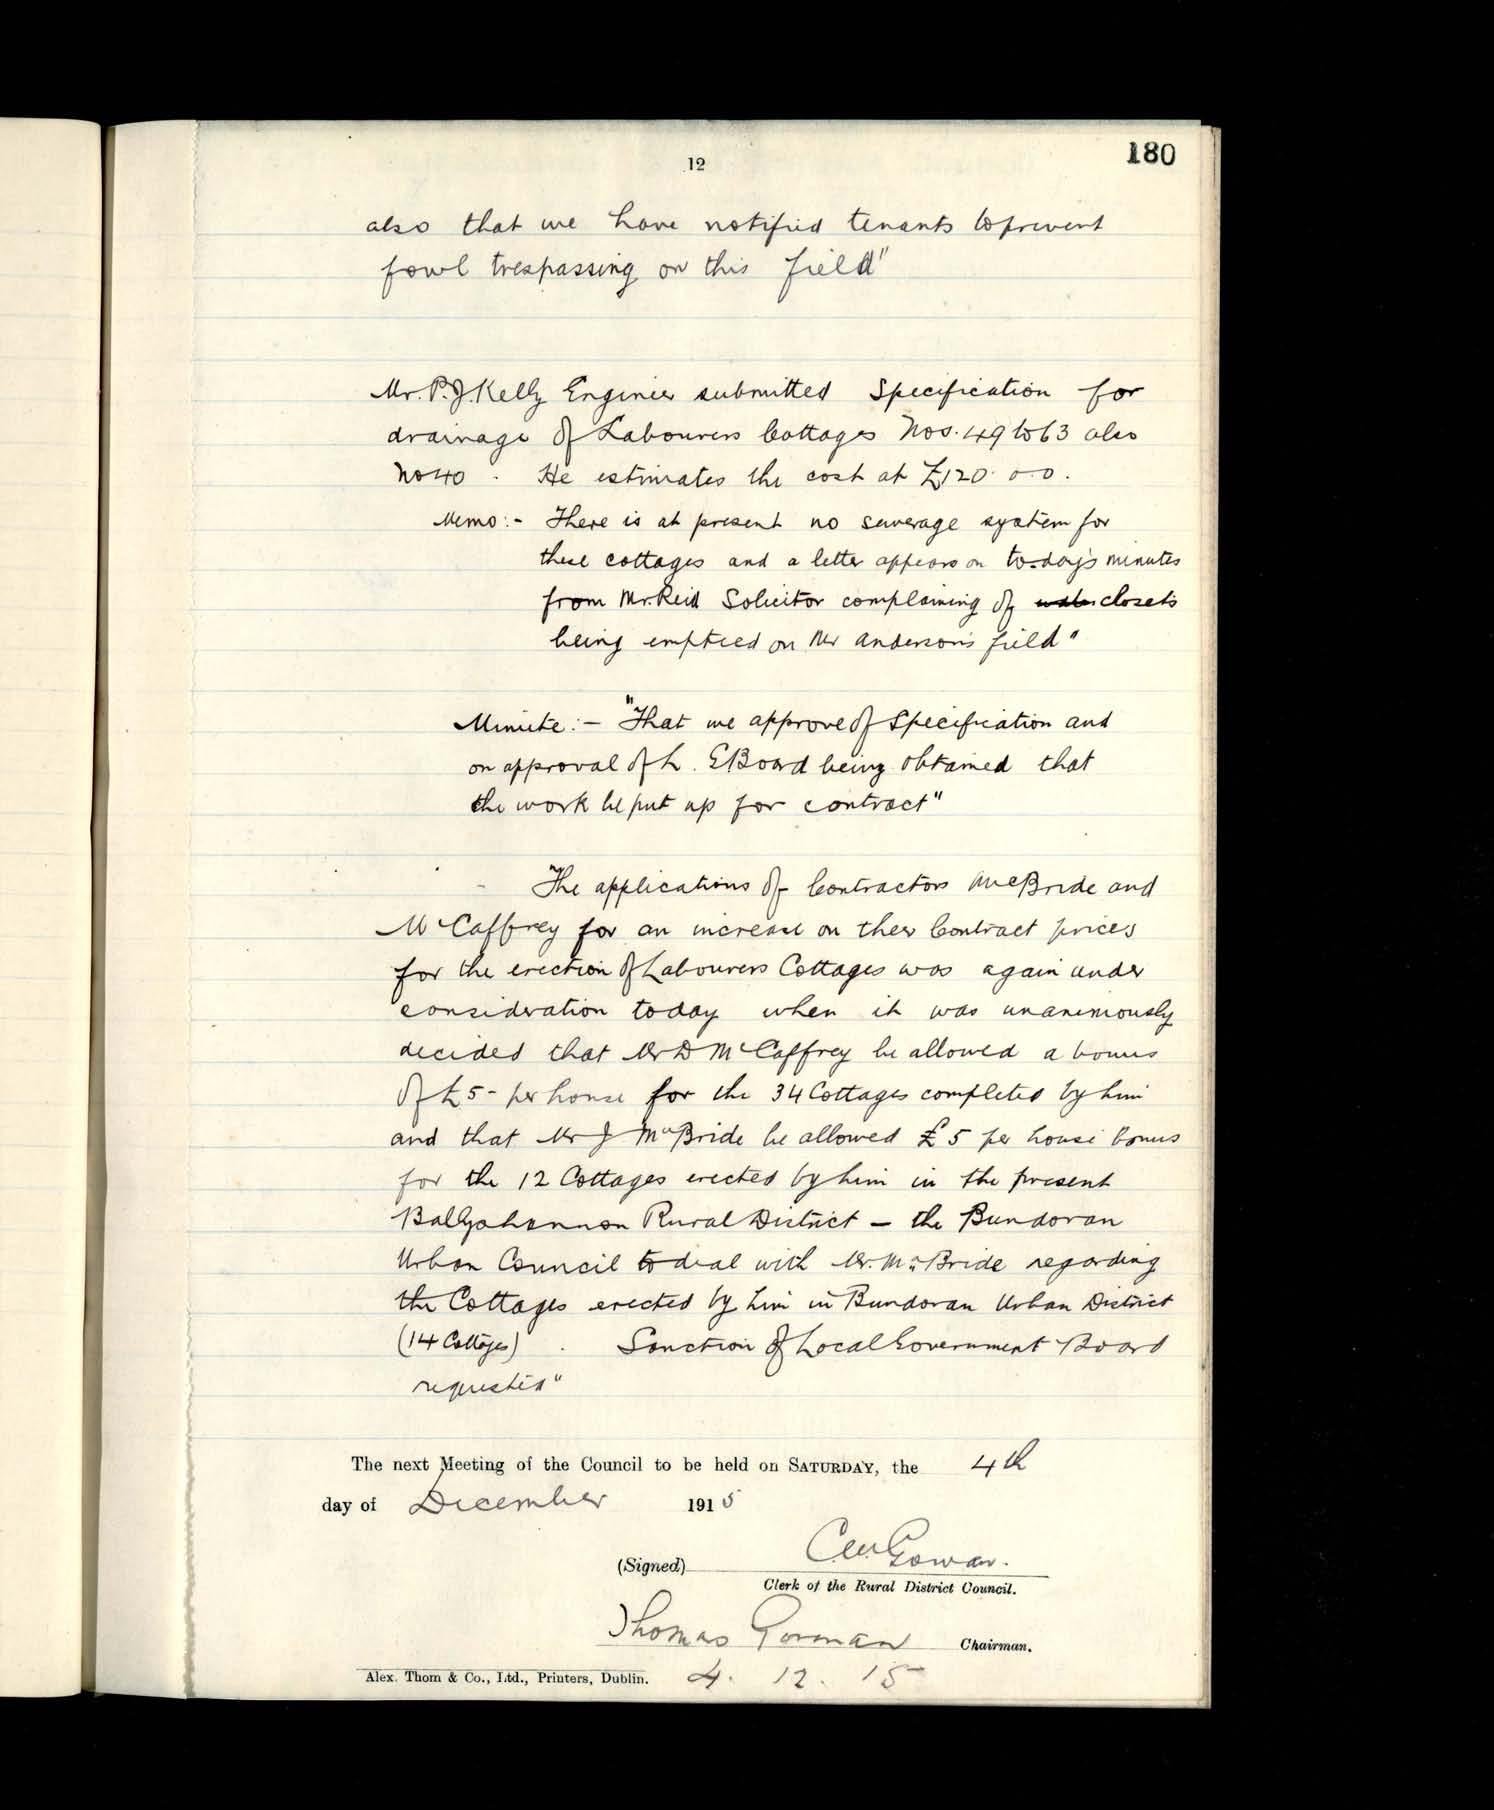 12
180
also that we have notified tenants to prevent
fowl trespassing on this field"
Mr. P. J. Kelly Engineer submitted Specification for
drainage of Labourers Cottages Nos. 49 to 63 also
No 40 . He estimates the cost at £120. 0. 0.
Memo:- There is at present no sewerage system for
these cottages and a letter appears on to-day's minutes
from Mr. Reid Solicitor complaining of water closets
being emptied on Mr Anderson's field"
Minute:- "That we approve of Specification and
on approval of L. G Board being obtained that
the work be put up for contract"
"The applications of Contractors McBride and
McCaffrey for an increase on their Contract prices
for the erection of Labourers Cottages was again under
consideration today when it was unanimously
decided that Mr D McCaffrey be allowed a bonus
of £5- per house for the 34 Cottages completed by him
and that Mr J McBride be allowed £5 per house bonus
for the 12 Cottages erected by him in the present
Ballyshannon Rural District - the Bundoran
Urban Council to deal with Mr. McBride regarding
the Cottages erected by him in Bundoran Urban District
(14 Cottages) . Sanction of Local Government Board
requested"
The next Meeting of the Council to be held on SATURDAY, the 4th
day of December 1915
(Signed) Gowan.
Clerk of the Rural District Council.
Thomas Gorman Chairman.
Alex. Thom & Co., Ltd., Printers, Dublin. 4. 12. 15